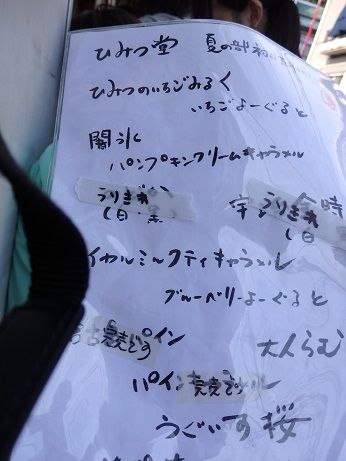 ひみつ堂 夏の部
ひみつのいちごみるく
いちごよーぐると
闇氷
パンプキンクリームキャラメル
うりきれ
宇 金時
うりきれ
イヤルミルクティキャラメル
ブルーベリーよーぐると
パイン
大人らむ
パイン
うぐいす桜